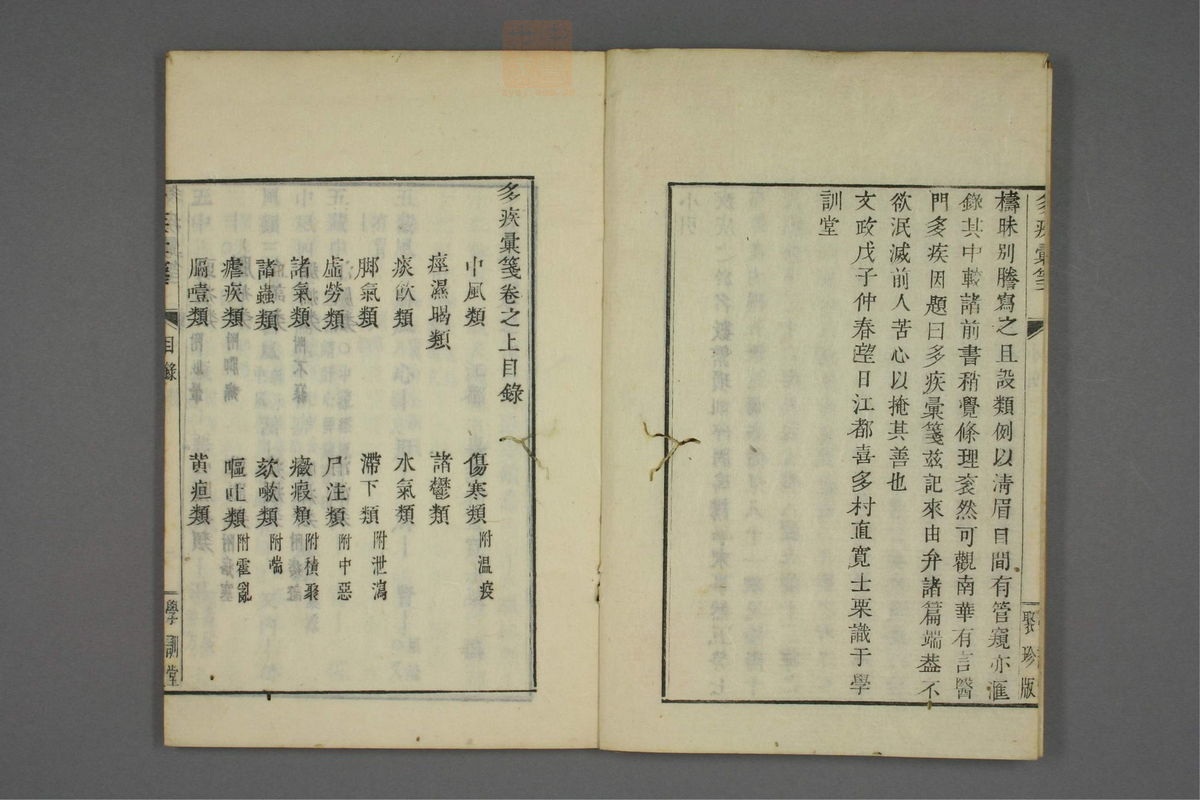 多疾彙箋
聚珍版
檮昧别謄寫之且設類例以淸眉目間有管窺亦滙
錄其中較諸前書稍覺條理袞然可觀南華有言醫
門多疾因題曰多疾彙箋玆記來由弁諸篇端葢不
欲泯滅前人苦心以掩其善也
文政戊子仲春望日江都喜多村直寬士栗識于學
訓堂
多疾彙箋卷之上目錄
中風類 傷寒類附温疫
痙濕暍類 諸鬱類
痰飮類 水氣類
脚氣類 滯下類附泄瀉
虛勞類 尸注類附中惡
諸氣類 癥瘕類附積聚
諸蟲類 欬嗽類附喘
瘧疾類 嘔吐類附霍亂
膈噎類 黃疸類
目錄
學訓堂